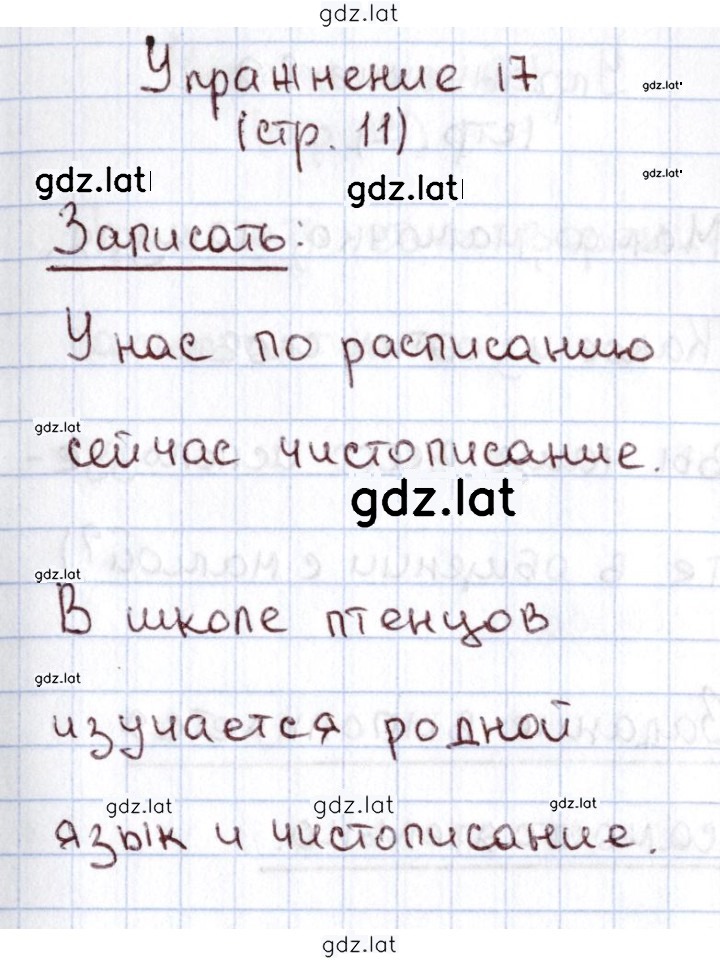 gdz.lat
Упражнение 17
gdz.lat
(стр. 11)
gdz.lat
gdz.lat
gdz.lat
Записать:
У нас по расписанию
gdz.lat
сейчас чистописание.
gdz.lat
gdz.lat
В школе птенцов
gdz.lat
изучается родной
gdz.lat
gdz.lat
gdz.lat
язык и чистописание.
gdz.lat